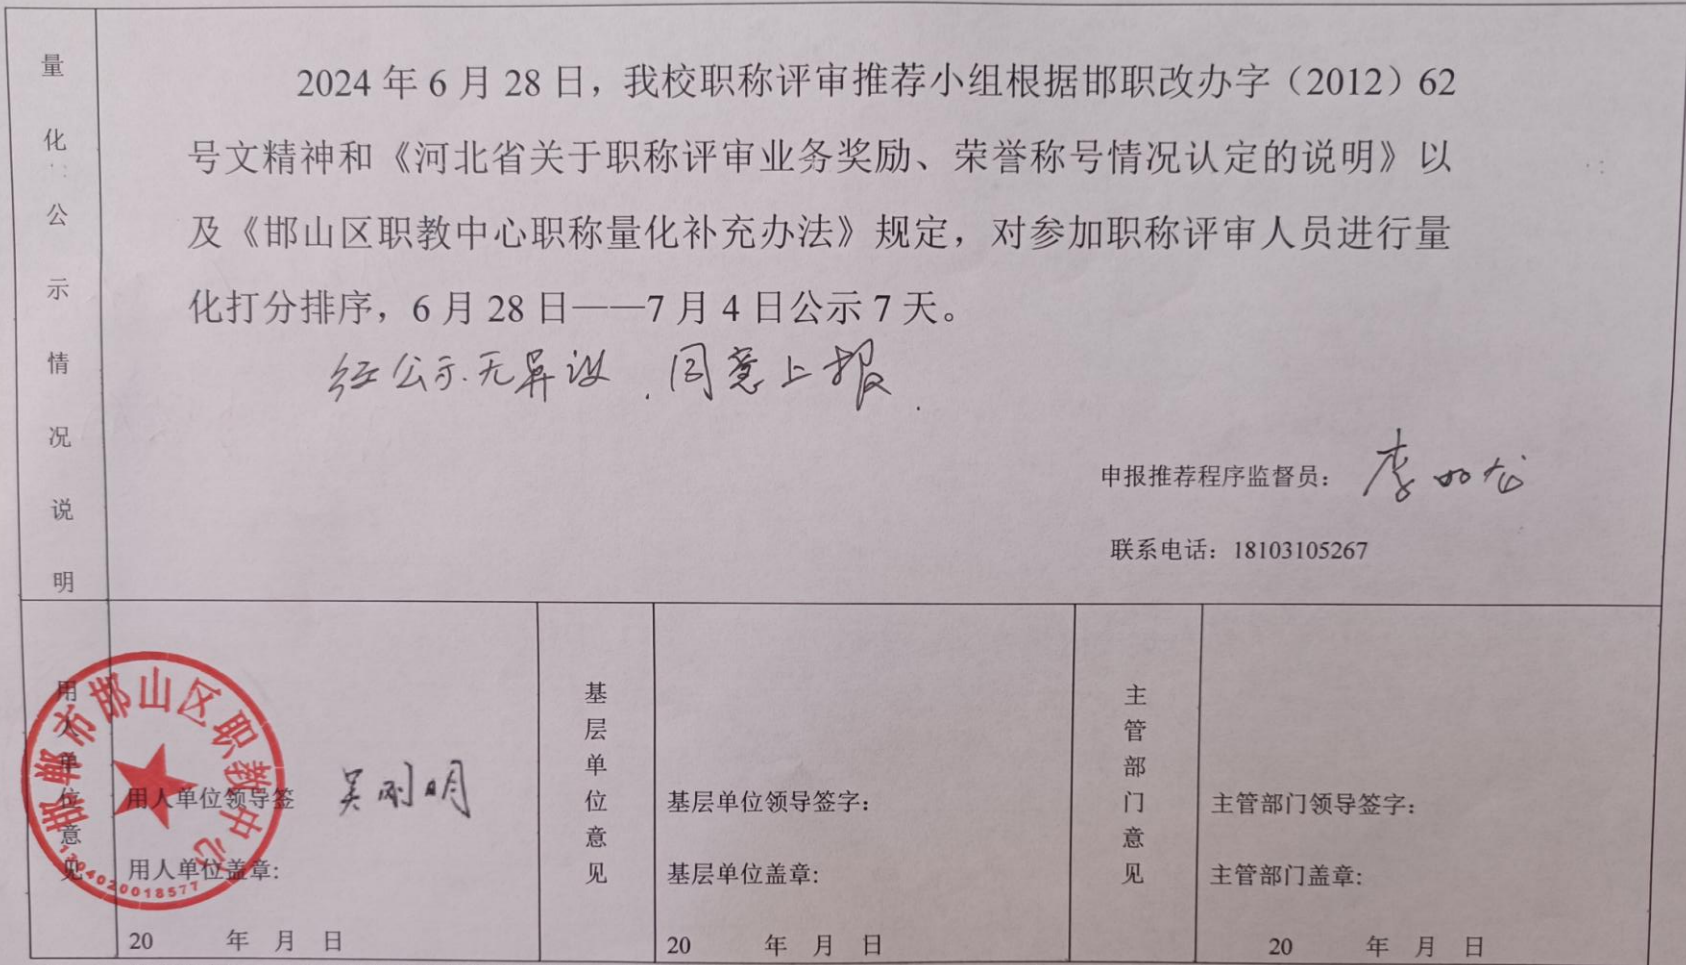 量化公示情况说明
2024 年 6 月 28 日，我校职称评审推荐小组根据邯职改办字（2012）62
号文精神和《河北省关于职称评审业务奖励、荣誉称号情况认定的说明》以
及《邯山区职教中心职称量化补充办法》规定，对参加职称评审人员进行量
化打分排序，6 月 28 日——7 月 4 日公示 7 天。
经公示.无异议.同意上报.
申报推荐程序监督员：李如龙
联系电话：18103105267
用人单位意见
邯郸市邯山区职教中心
1304020018577
用人单位领导签 吴刚明
用人单位盖章:
20 年 月 日
基层单位意见
基层单位领导签字：
基层单位盖章:
20 年 月 日
主管部门意见
主管部门领导签字：
主管部门盖章:
20 年 月 日